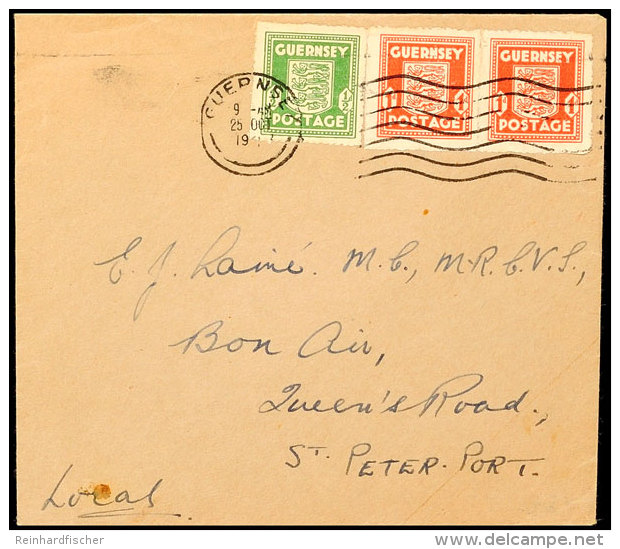 GUERNSEY GUERNSEY GUERNSEY
½ 1D 1D
POSTAGE POSTAGE POSTAGE
GUERNSEY
9 - AM
25 OCT
19
E. J. Lainé. M.C., M.R.C.V.S.,
Bon Air,
Queen's Road.,
St. PETER-PORT.
Local.
Reinhardfischer
delcampe.net